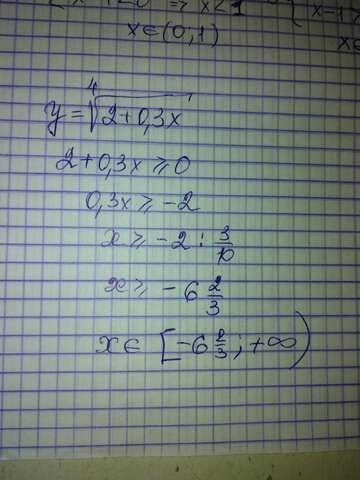 x<1
x∈(0,1)
y=⁴√(2+0,3x)
2+0,3x⩾0
0,3x⩾-2
x⩾-2:3/10
x⩾-6 2/3
x∈[-6 2/3;+∞)